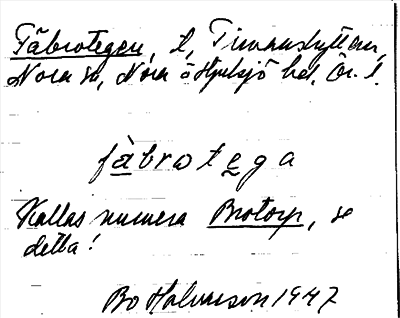 Fäbrotegen, t, Timanshyttan,
Nora sn, Nora o Hjulsjö hd, Ör. l.
fàbrotega
Kallas numera Brotorp, se
detta!
Bo Halvarson 1947